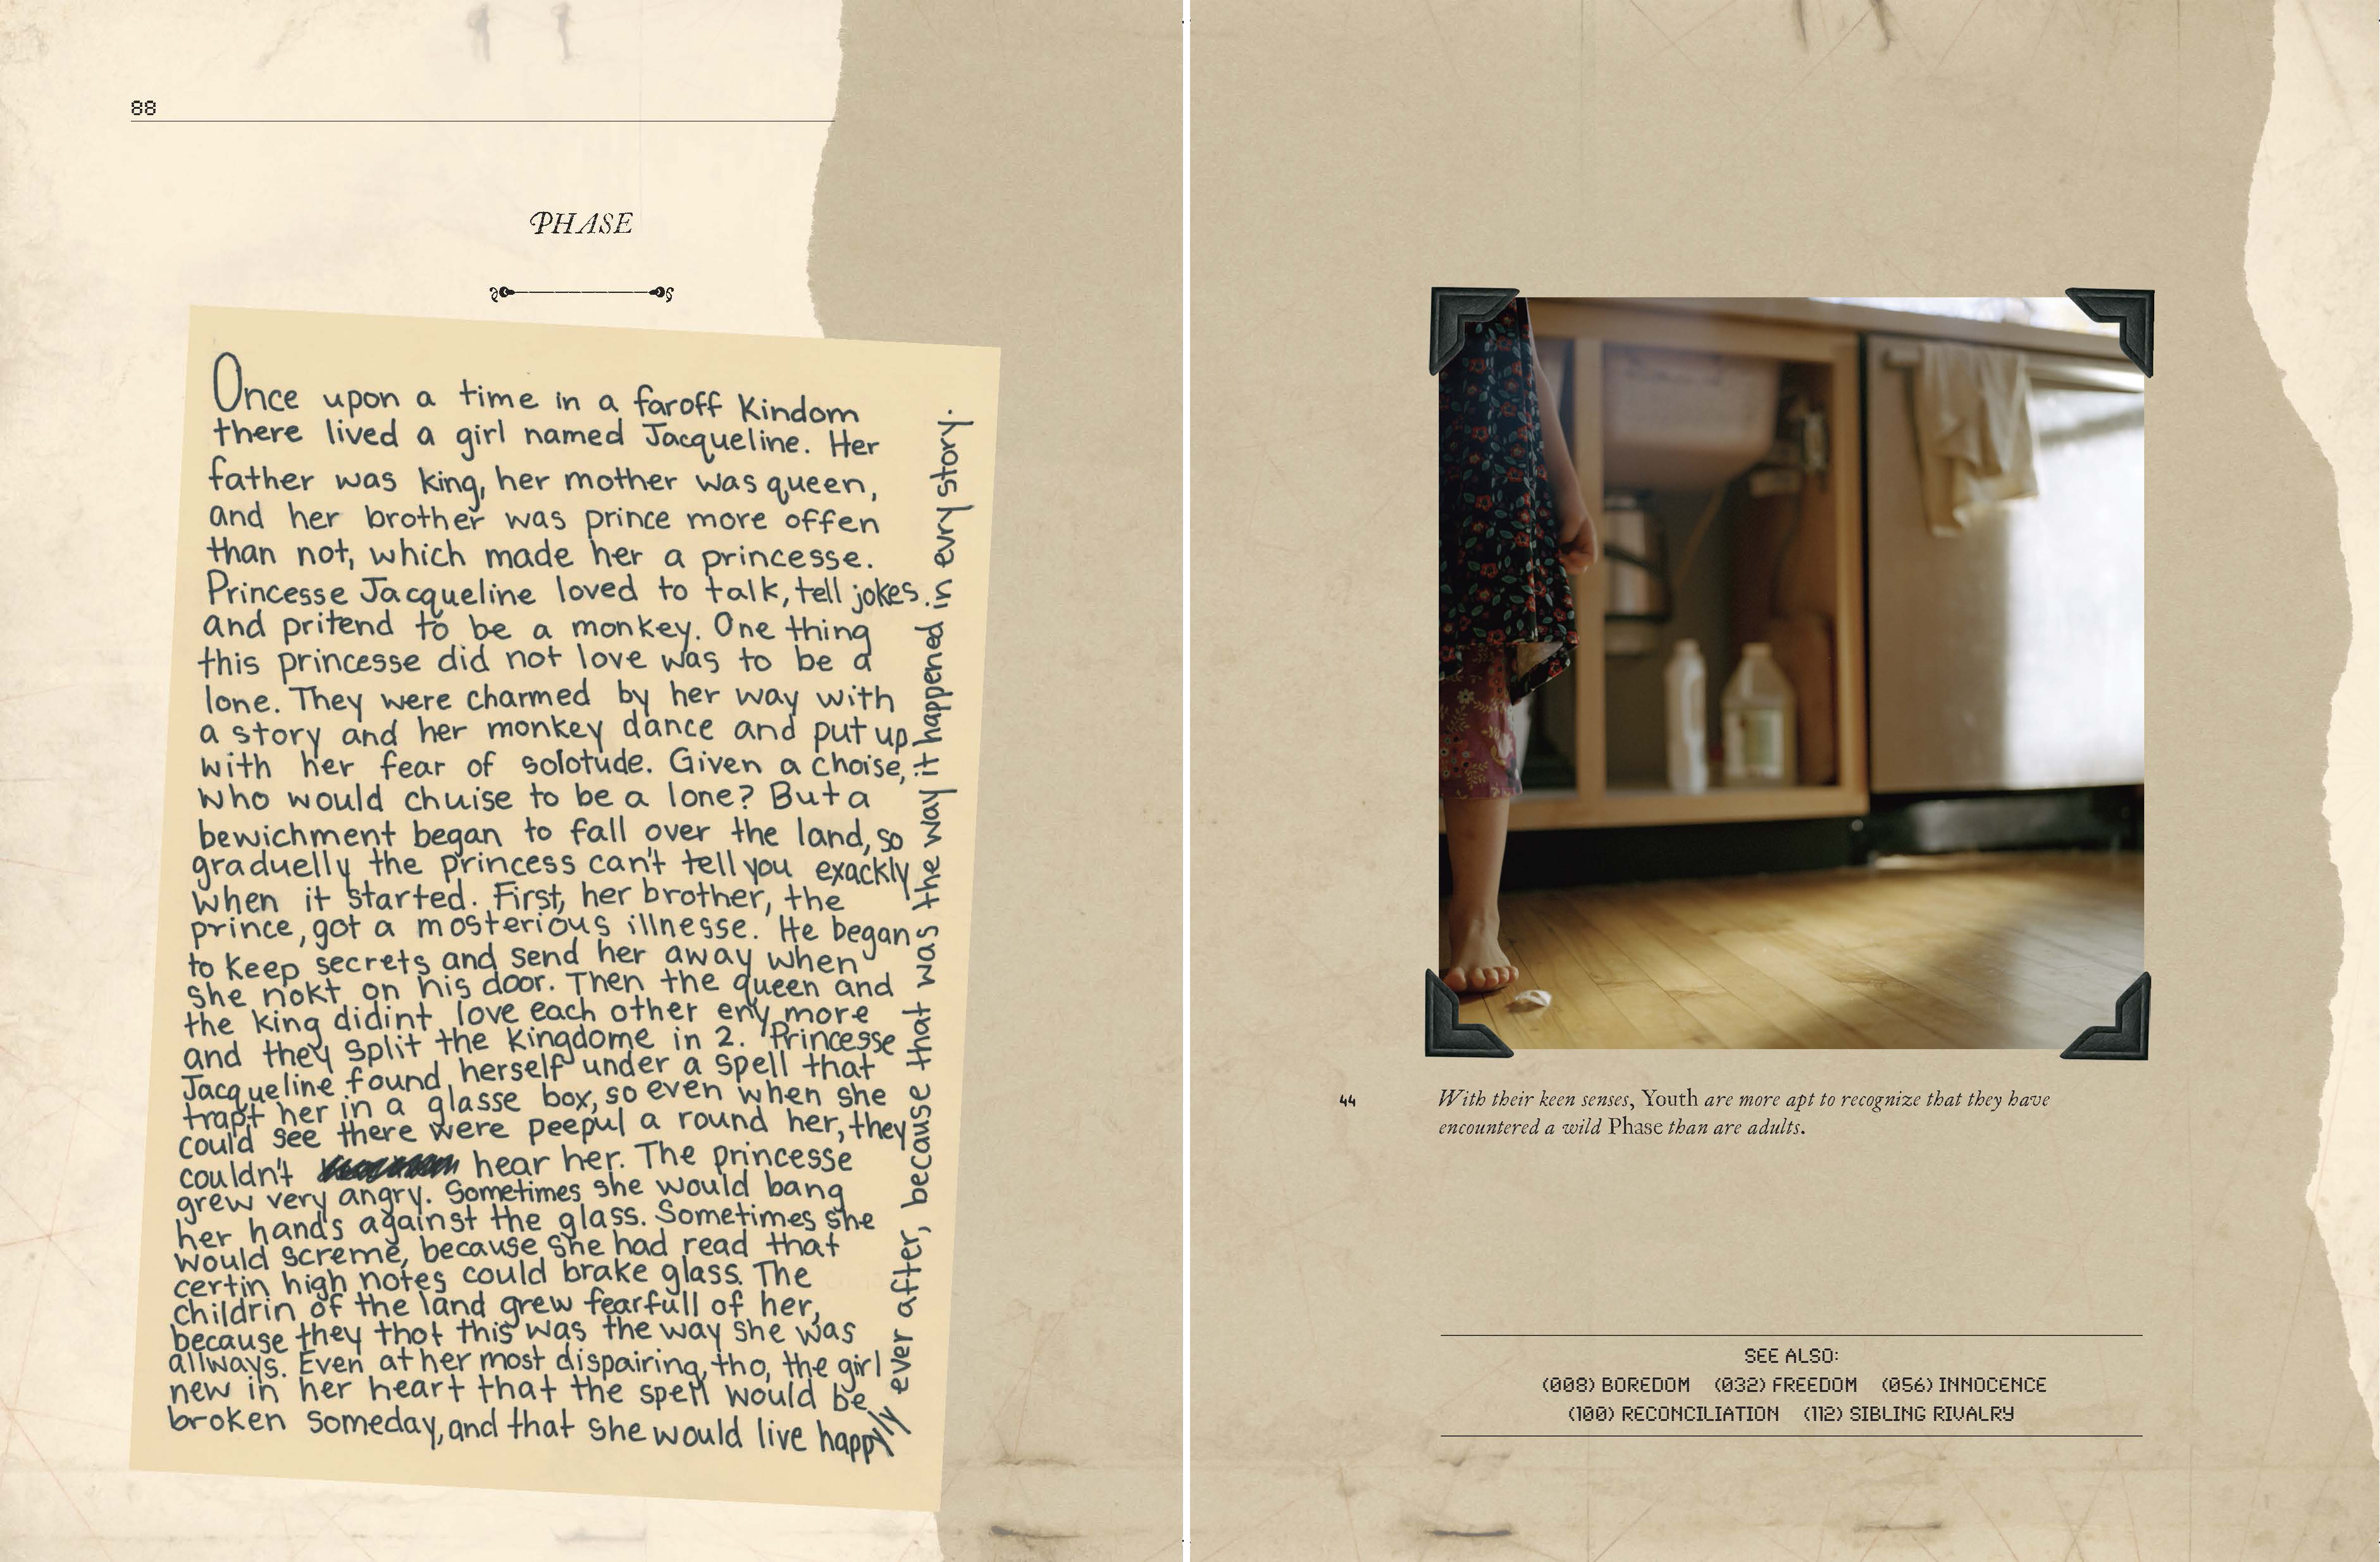 88
PHASE
Once upon a time in a faroff Kindom
there lived a girl named Jacqueline. Her
father was king, her mother was queen,
and her brother was prince more offen
than not, which made her a princesse.
Princesse Jacqueline loved to talk, tell jokes.
and pritend to be a monkey. One thing
this princesse did not love was to be a
lone. They were charmed by her way with
a story and her monkey dance and put up
with her fear of solotude. Given a choise,
who would chuise to be a lone? But a
bewichment began to fall over the land, so
graduelly the princess can't tell you exackly
when it started. First, her brother, the
prince, got a mosterious illnesse. He began
to keep secrets and send her away when
she nokt on his door. Then the queen and
the king didint love each other eny more
and they split the kingdome in 2. Princesse
Jacqueline found herself under a spell that
trapt her in a glasse box, so even when she
could see there were peepul a round her, they
couldn't hear her. The princesse
grew very angry. Sometimes she would bang
her hands against the glass. Sometimes she
would screme, because she had read that
certin high notes could brake glass. The
childrin of the land grew fearfull of her,
because they thot this was the way she was
allways. Even at her most dispairing, tho, the girl
new in her heart that the spell would be
broken someday, and that she would live happyly
ever after, because that was the way it happened in evry story.
44
With their keen senses, Youth are more apt to recognize that they have
encountered a wild Phase than are adults.
SEE ALSO:
(008) BOREDOM (032) FREEDOM (056) INNOCENCE
(100) RECONCILIATION (112) SIBLING RIVALRY